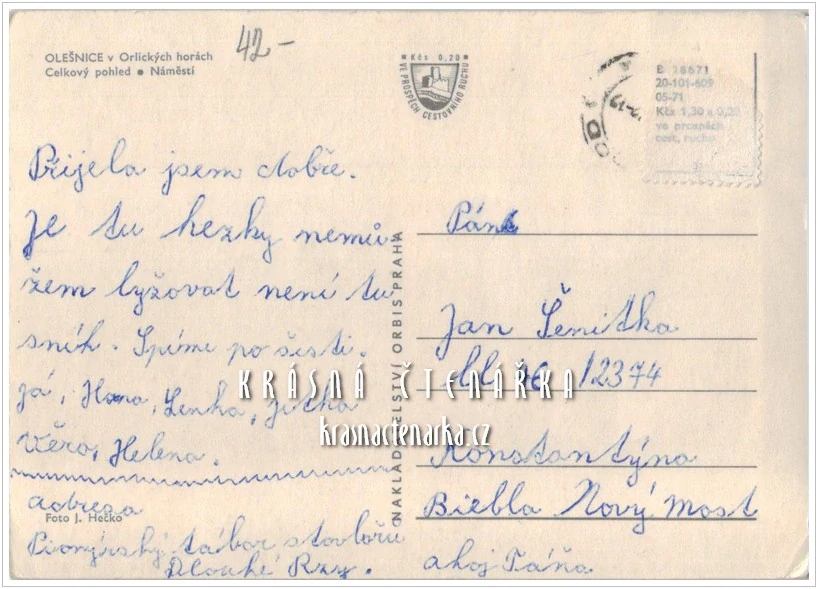 OLEŠNICE v Orlických horách
Celkový pohled ● Náměstí
42-
Kčs 0,20
VE PROSPĚCH CESTOVNÍHO RUCHU
B 18671
20-101-609
05-71
Kčs 1,30 + 0,20
ve prospěch
cest. ruchu
Přijela jsem dobře.
Je tu hezky nemů
žem lyžovat není tu
sníh. Spíme po šesti.
já, Hana, Lenka, Jitka
Věra, Helena.
adresa
Foto J. Hečko
Pionýrský tábor
Dlouhé Rzy.
NAKLADATELSTVÍ ORBIS PRAHA
Pán
Jan Šenitka
12374
Konstantýna
Biebla Nový Most
ahoj Táňa
KRÁSNÁ ČTENÁŘKA
krasnactenarka.cz